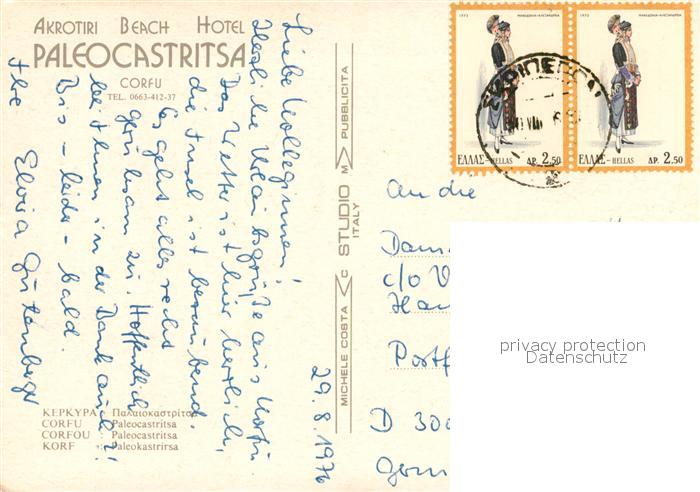 AKROTIRI BEACH HOTEL
PALEOCASTRITSA
CORFU
TEL. 0663-412-37
Liebe Kolleginnen!
Herzliche Urlaubsgrüße aus Korfu.
Das Wetter ist hier herrlich,
die Insel ist bezaubernd.
Es geht alles recht
geruhsam zu. Hoffentlich
bei Ihnen in der Bank auch?!
Bis - leider - bald.
Ihre Elvira
29.8.1976
ΚΕΡΚΥΡΑ : Παλαιοκαστρίτσα
CORFU : Paleocastritsa
CORFOU : Paleocastritsa
KORF : Paleokastrirsa
MICHELE COSTA C STUDIO M PUBBLICITA
ITALY
1973 ΜΑΚΕΔΟΝΙΑ-ΑΛΕΞΑΝΔΡΕΙΑ
ΕΛΛΑΣ-HELLAS ΔΡ. 2.50
1973 ΜΑΚΕΔΟΝΙΑ-ΑΛΕΞΑΝΔΡΕΙΑ
ΕΛΛΑΣ-HELLAS ΔΡ. 2.50
An die
Dam
c/o V
Han
Postf
D 300
Germ
privacy protection
Datenschutz